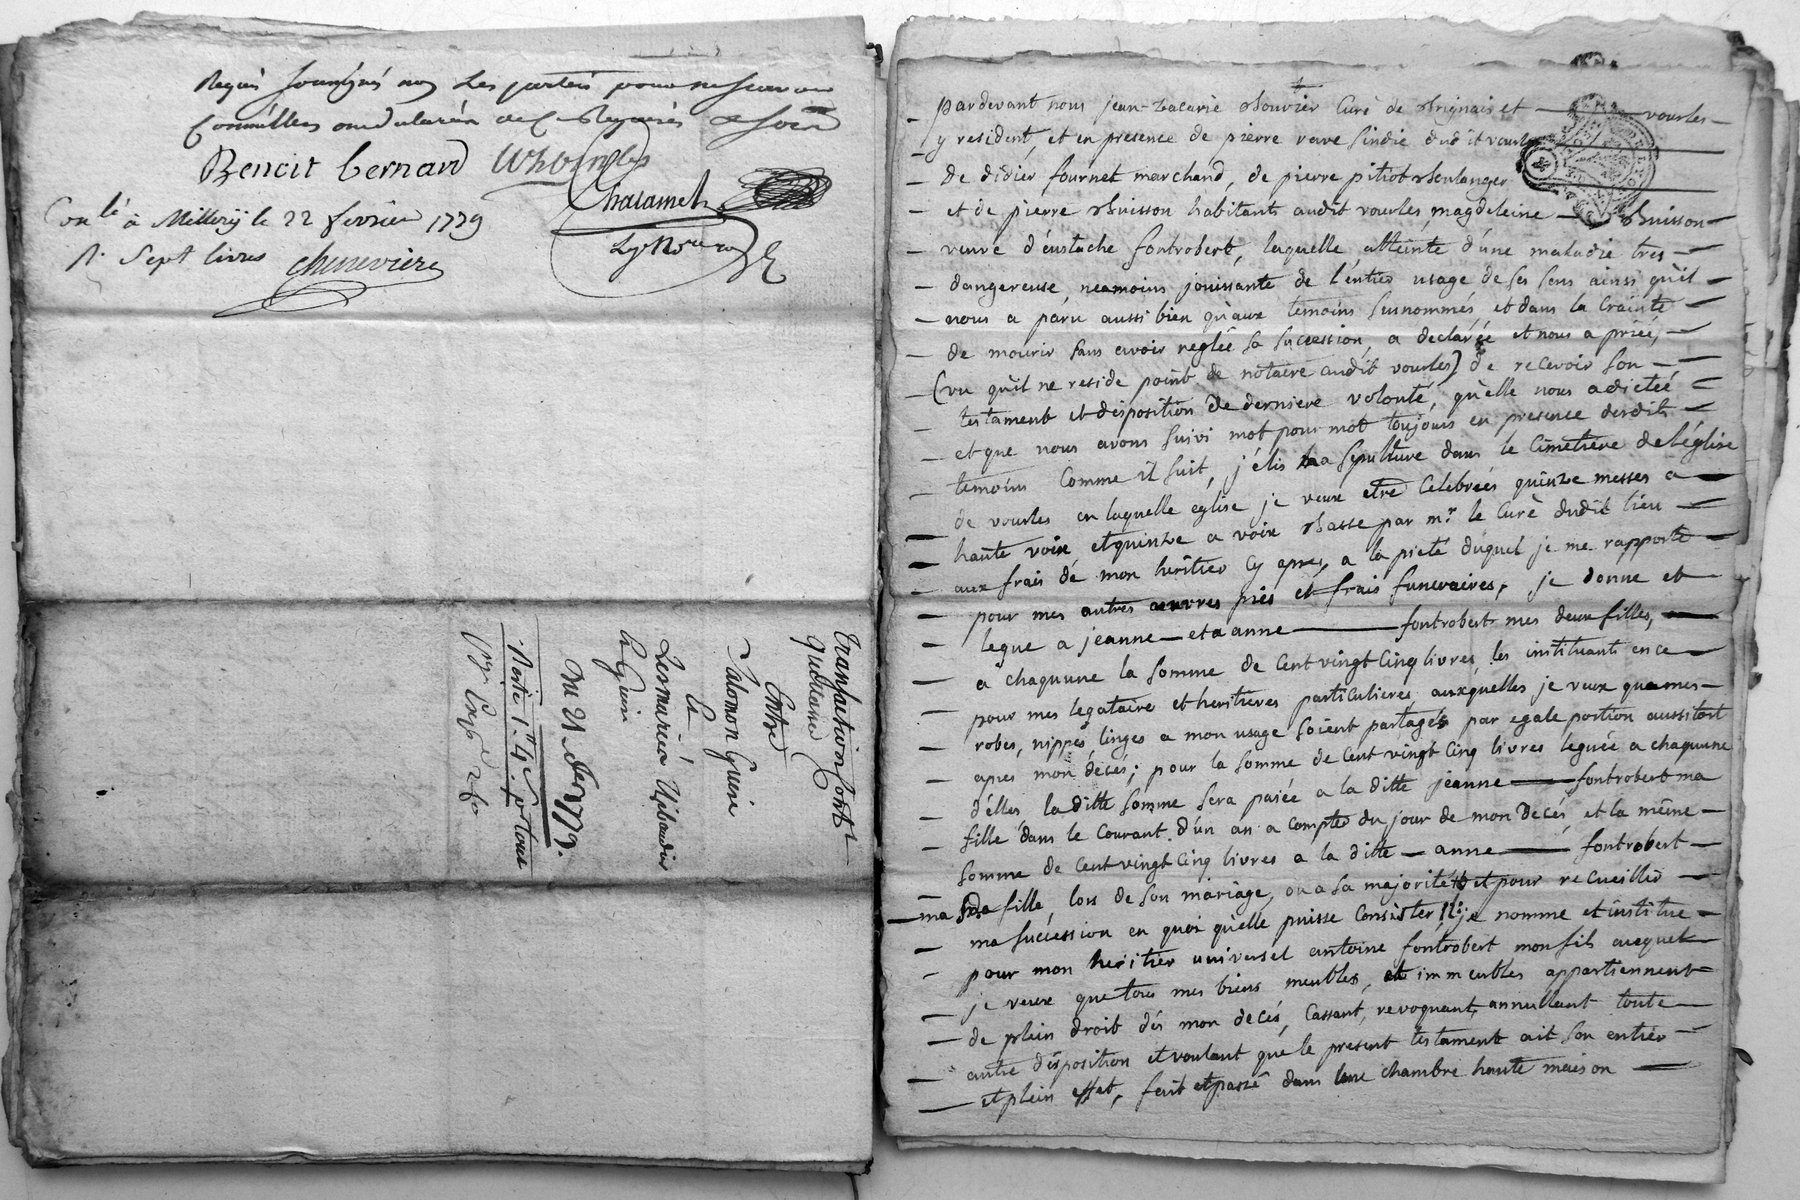 Requis soussignés non les parties pour ne scavoir
Benoit bernard
Chatamel
Conlé à Millery le 22 fevrier 1779
R. Sept livres cheneviere
Transaction
Entre
Salomon Guerre
Et
Les mariés Thibaudier
et Guerre
pardevant nous jean-Zacarie Bouvier Curé de Brignais et vourles
y resident, et en presence de pierre veuve sindic dudit vourles
de didier fournet marchand, de pierre pitiot Boulanger
et de pierre Buisson habitants audit vourles magdeleine Buisson
veuve d'éustache fontrobert, laquelle atteinte d'une maladie tres
dangereuse, neamoins jouissante de l'entier usage de ses sens ainsi qu'il
nous a paru aussi bien qu'aux temoins susnommés, et dans la crainte
de mourir sans avoir reglée sa succession, a declarée et nous a priée,
(vu qu'il ne reside point de notaire audit vourles) de recevoir son
testament et disposition de derniere volonté, qu'elle nous a dictée
et que nous avons suivi mot pour mot toujours en presence desdits
temoins Comme il suit, j'élis ma sepulture dans le Cimetiere de l'église
de vourles en laquelle eglise je veux etre Celebrées quinze messes a
haute voix et quinze a voix Basse par mr. le Curé dudit lieu
aux frais de mon heritier Cy apres, a la pieté duquel je me rapporte
pour mes autres œuvres pies et frais funeraires, je donne et
legue a jeanne et a anne fontrobert mes deux filles,
a chaquune la somme de Cent vingt Cinq livres, les instituant en ce
pour mes legataire et heritieres particulieres auxquelles je veux que mes
robes, nippes linges a mon usage soient partagés par egale portion aussitost
apres mon decés; pour la somme de Cent vingt Cinq livres leguée a chaquune
d'elles la ditte somme sera paiée a la ditte jeanne fontrobert ma
fille dans le Courant d'un an a compter du jour de mon decés et la même
somme de Cent vingt Cinq livres a la ditte anne fontrobert
ma fille lors de son mariage, ou a sa majorité et pour recueillir
ma succession en quoi qu'elle puisse Consister, je nomme et institue
pour mon heritier universel antoine fontrobert mon fils auquel
je veux que tous mes biens meubles, et immeubles appartiennent
de plein droit dès mon decés, Cassant, revoquant, annullant toute
autre disposition et voulant que le present testament ait son entier
et plein effet, fait et passé dans une chambre haute maison